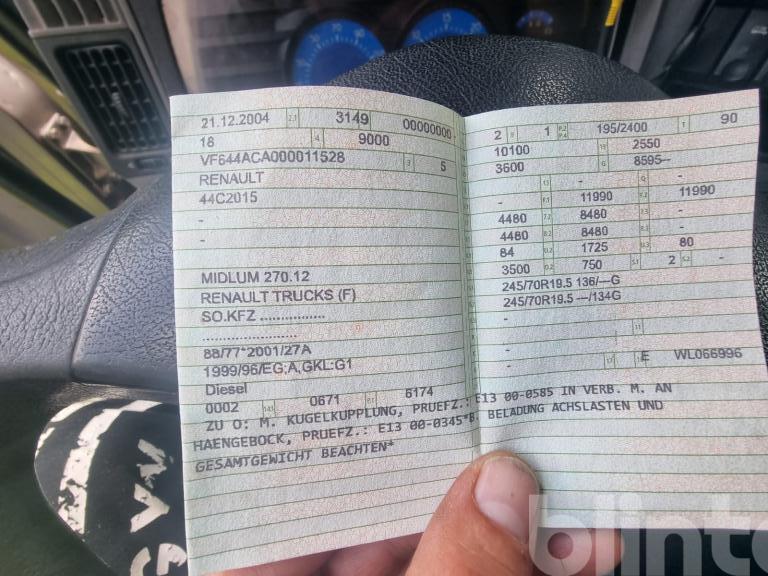 21.12.2004 2.1 3149 00000000
18 4 9000
VF644ACA000011528 3 5
RENAULT
44C2015
-
-
MIDLUM 270.12
RENAULT TRUCKS (F)
SO.KFZ ................
......................
88/77*2001/27A
1999/96/EG;A,GKL:G1
Diesel
0002 14.1 0671 P.1 6174
2 9 1 P.2 P.4 195/2400 T 90
10100 18 2550
3600 G 8595--
- 13 - Q -
- F.1 11990 F.2 11990
4480 7.2 8480 7.3 -
4480 8.2 8480 8.3 -
84 U.2 1725 U.3 80
3500 O.2 750 S.1 2 S.2 -
245/70R19.5 136/---G
245/70R19.5 ---/134G
-
- 11
- E WL066996
ZU O: M. KUGELKUPPLUNG, PRUEFZ.: E13 00-0585 IN VERB. M. AN
HAENGEBOCK, PRUEFZ.: E13 00-0345*B. BELADUNG ACHSLASTEN UND
GESAMTGEWICHT BEACHTEN*
blinto